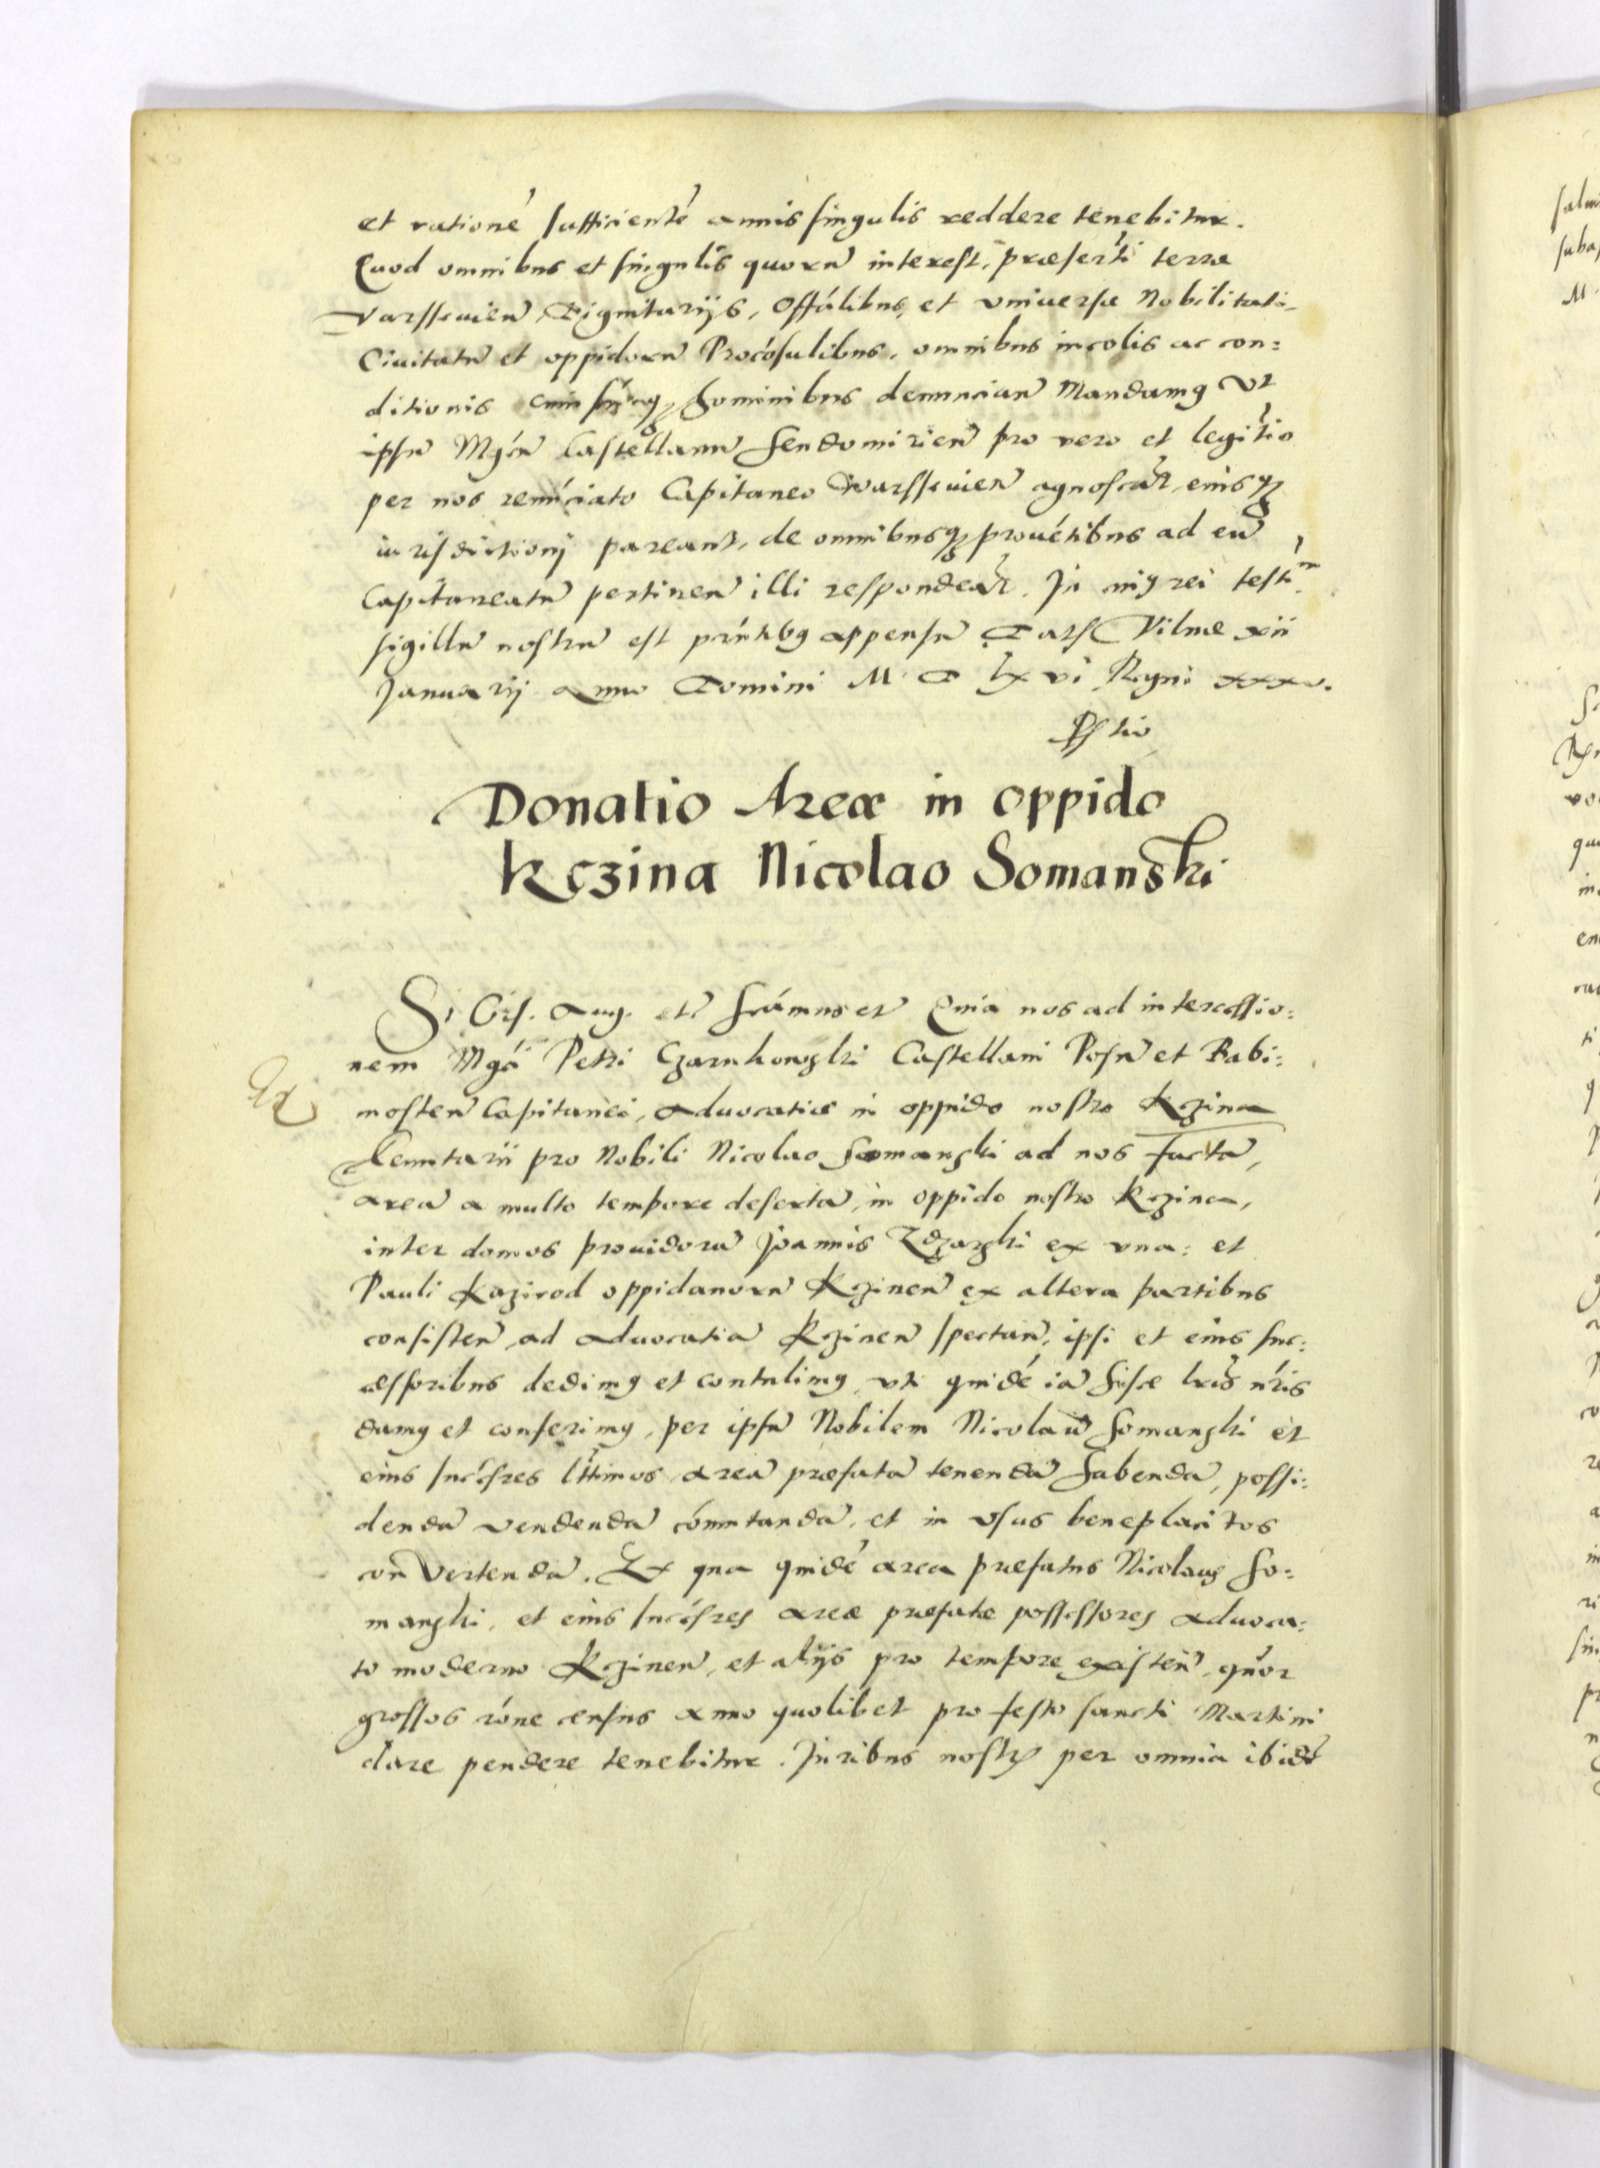 et rationē sufficientē annis singulis reddere tenebitur.
Quod omnibus et singulis quorū interest, præsertī terræ
Varsseuien̄ Dignitarijs, Offālibus, et vniuersæ Nobilitati
Ciuitatū et oppidorū Procōsulibus, omnibus incolis ac con:
ditionis hominibus denuncian̄ Mandamus Vt
ipsū Mgcū Castellanū Sendomirien̄ pro vero et legitīo
per nos renūciato Capitaneo Warsseuien̄ agnoscāt, eiusq₃
iurisdictionj pareant, de omnibusq₃ prouētibus ad eū
Capitaneatū pertinen̄ illi respondeāt. In cuius rei testim̄
sigillū nostrū est pn̄tibus appensū Dat Vilnæ xii
Januarij Anno Domini M D lxvi Regni xxxv.
Donatio Areæ in oppido
Kczina Nicolao Somanski
Si Gis. Aug. etc̄ Quia nos ad intercessio:
nem Mgci Petri Czarnkowski Castellani Posn̄ et Babi:
mosten̄ Capitanei, Aduocatiæ in oppido nostro Kczina
tenutarii pro Nobili Nicolao Somanski ad nos factā,
areā a multo tempore desertā, in oppido nostro Kczina,
inter domos prouidorū Joannis Zdzarski ex vna: et
Pauli Kazirod oppidanorū Kczinen̄ ex altera partibus
consisten̄, ad Aduocatiā Kczinen̄ spectan̄, ipsi et eius suc:
cessoribus dedimus et contulimus, vti quidē iā hisce lrīs nr̄is
damus et conferimus, per ipsū Nobilem Nicolaū Somanski et
eius succ̄sres lttimos areā præfatā tenendā habendā, possi:
dendā vendendā cōmutandā, et in vsus beneplacitos
con Vertendā. Ex qua quidē area præfatus Nicolaus So:
manski, et eius succ̄sres areæ præfatæ possessores Aduoca:
to moderno Kczinen̄, et alijs pro tempore existen̄, quatuor
grossos rōne census anno quolibet pro festo sancti Martini
dare pendere tenebitur. Juribus nostris per omnia ibidē